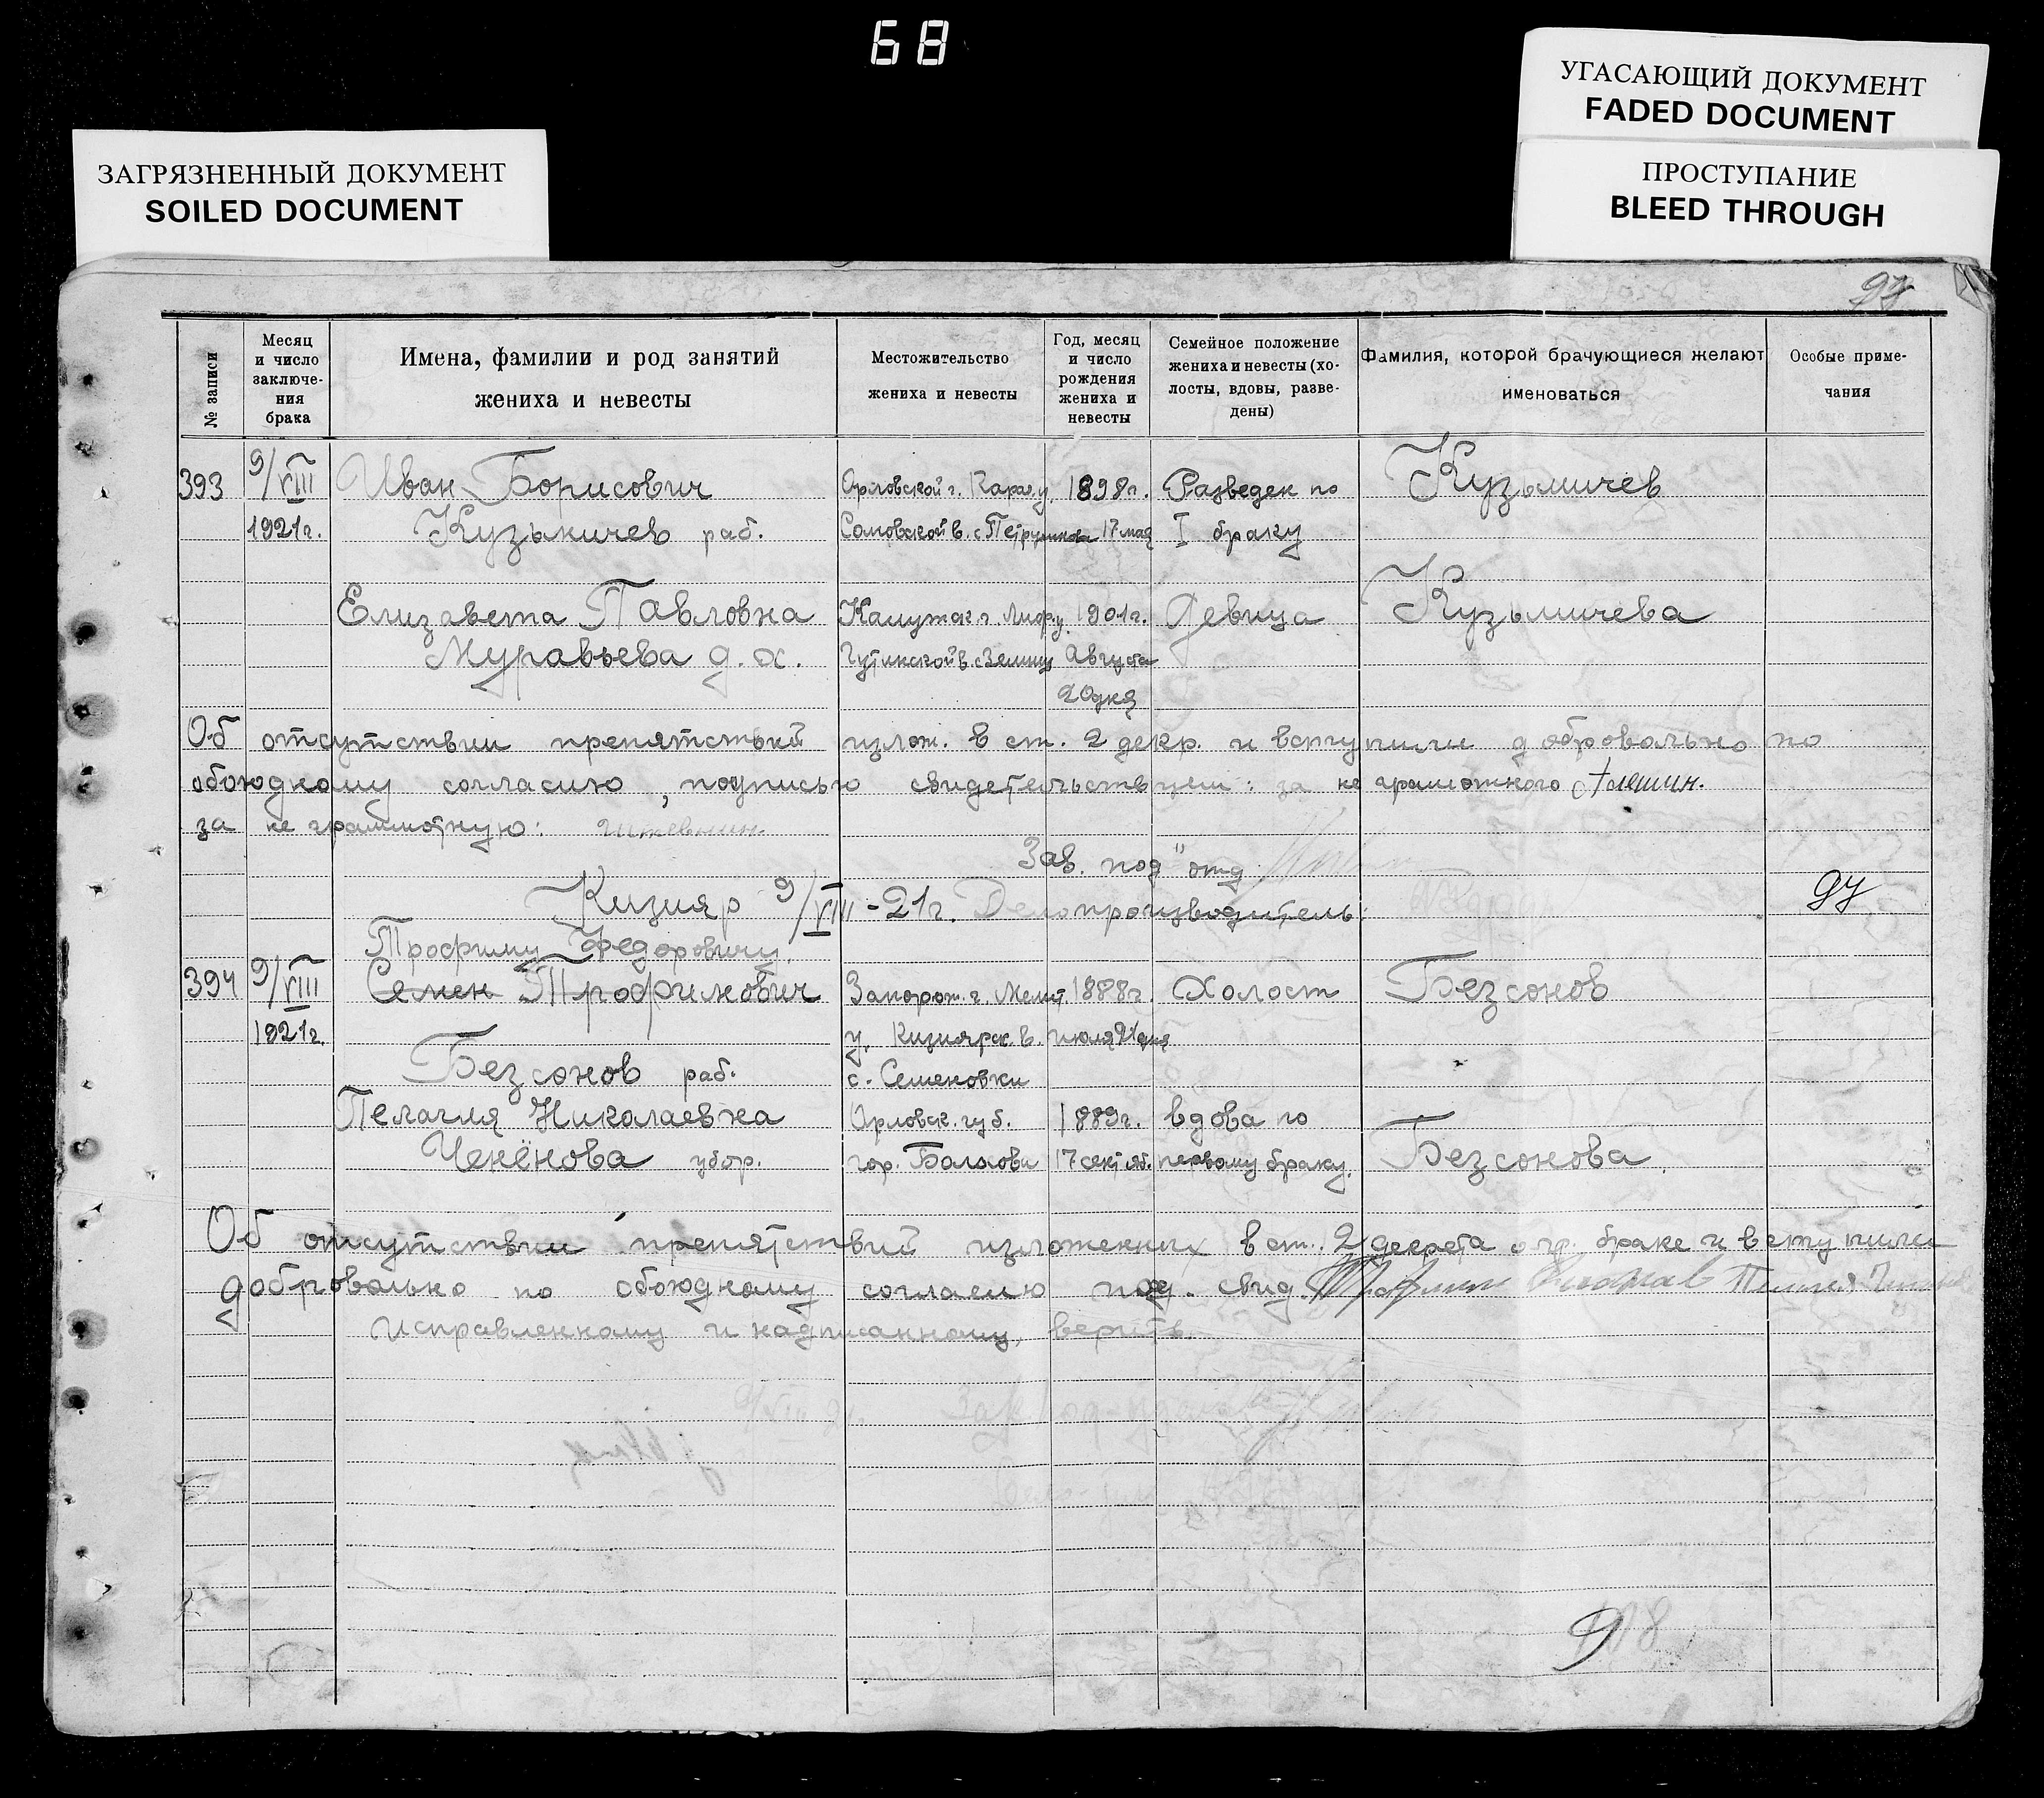 68
УГАСАЮЩИЙ ДОКУМЕНТ
FADED DOCUMENT
ПРОСТУПАНИЕ
BLEED THROUGH
ЗАГРЯЗНЕННЫЙ ДОКУМЕНТ
SOILED DOCUMENT
97
№ записи
Месяц
и число
заключе-
ния
брака
Имена, фамилии и род занятий
жениха и невесты
Местожительство
жениха и невесты
Год, месяц
и число
рождения
жениха и
невесты
Семейное положение
жениха и невесты (хо-
лосты, вдовы, разве-
дены)
Фамилия, которой брачующиеся желают
именоваться
Особые приме-
чания
393 9/VIII Иван Борисович Орловской г. Карач. у. 1898г. Разведен по Кузьмичев
1921г. Кузьмичев раб. Сомовской в. с. 17 мая I браку
Елизавета Павловна Калужск. г. у. 1901г. Девица Кузьмичева
Муравьева д. х. в. Августа
20 дня
Об отсутствии препятствий излож. в ст. 2 декр. и вступили добровольно по
обоюдному согласию, подписью свидетельствуем: за не грамотного
за не грамотную:
Зав. под"отд
Кизияр 9/VIII-21г. Делопроизводитель: 97
Трофиму Федоровичу.
394 9/VIII Семен Трофимович Запорож. г. Мелит. 1888г. Холост Безсонов
1921г. у. Кизиярск. в. июля 21 дня
Безсонов раб. с. Семеновки
Пелагия Николаевна Орловск. губ. 1889г. вдова по
Ченёнова убор. гор. 17 сентяб. первому браку. Безсонова.
Об отсутствии препятствий изложенных в ст. 2 декрета о гр. браке и вступили
добровольно по обоюдному согласию под. свид.
Исправленному и надписанному, верить